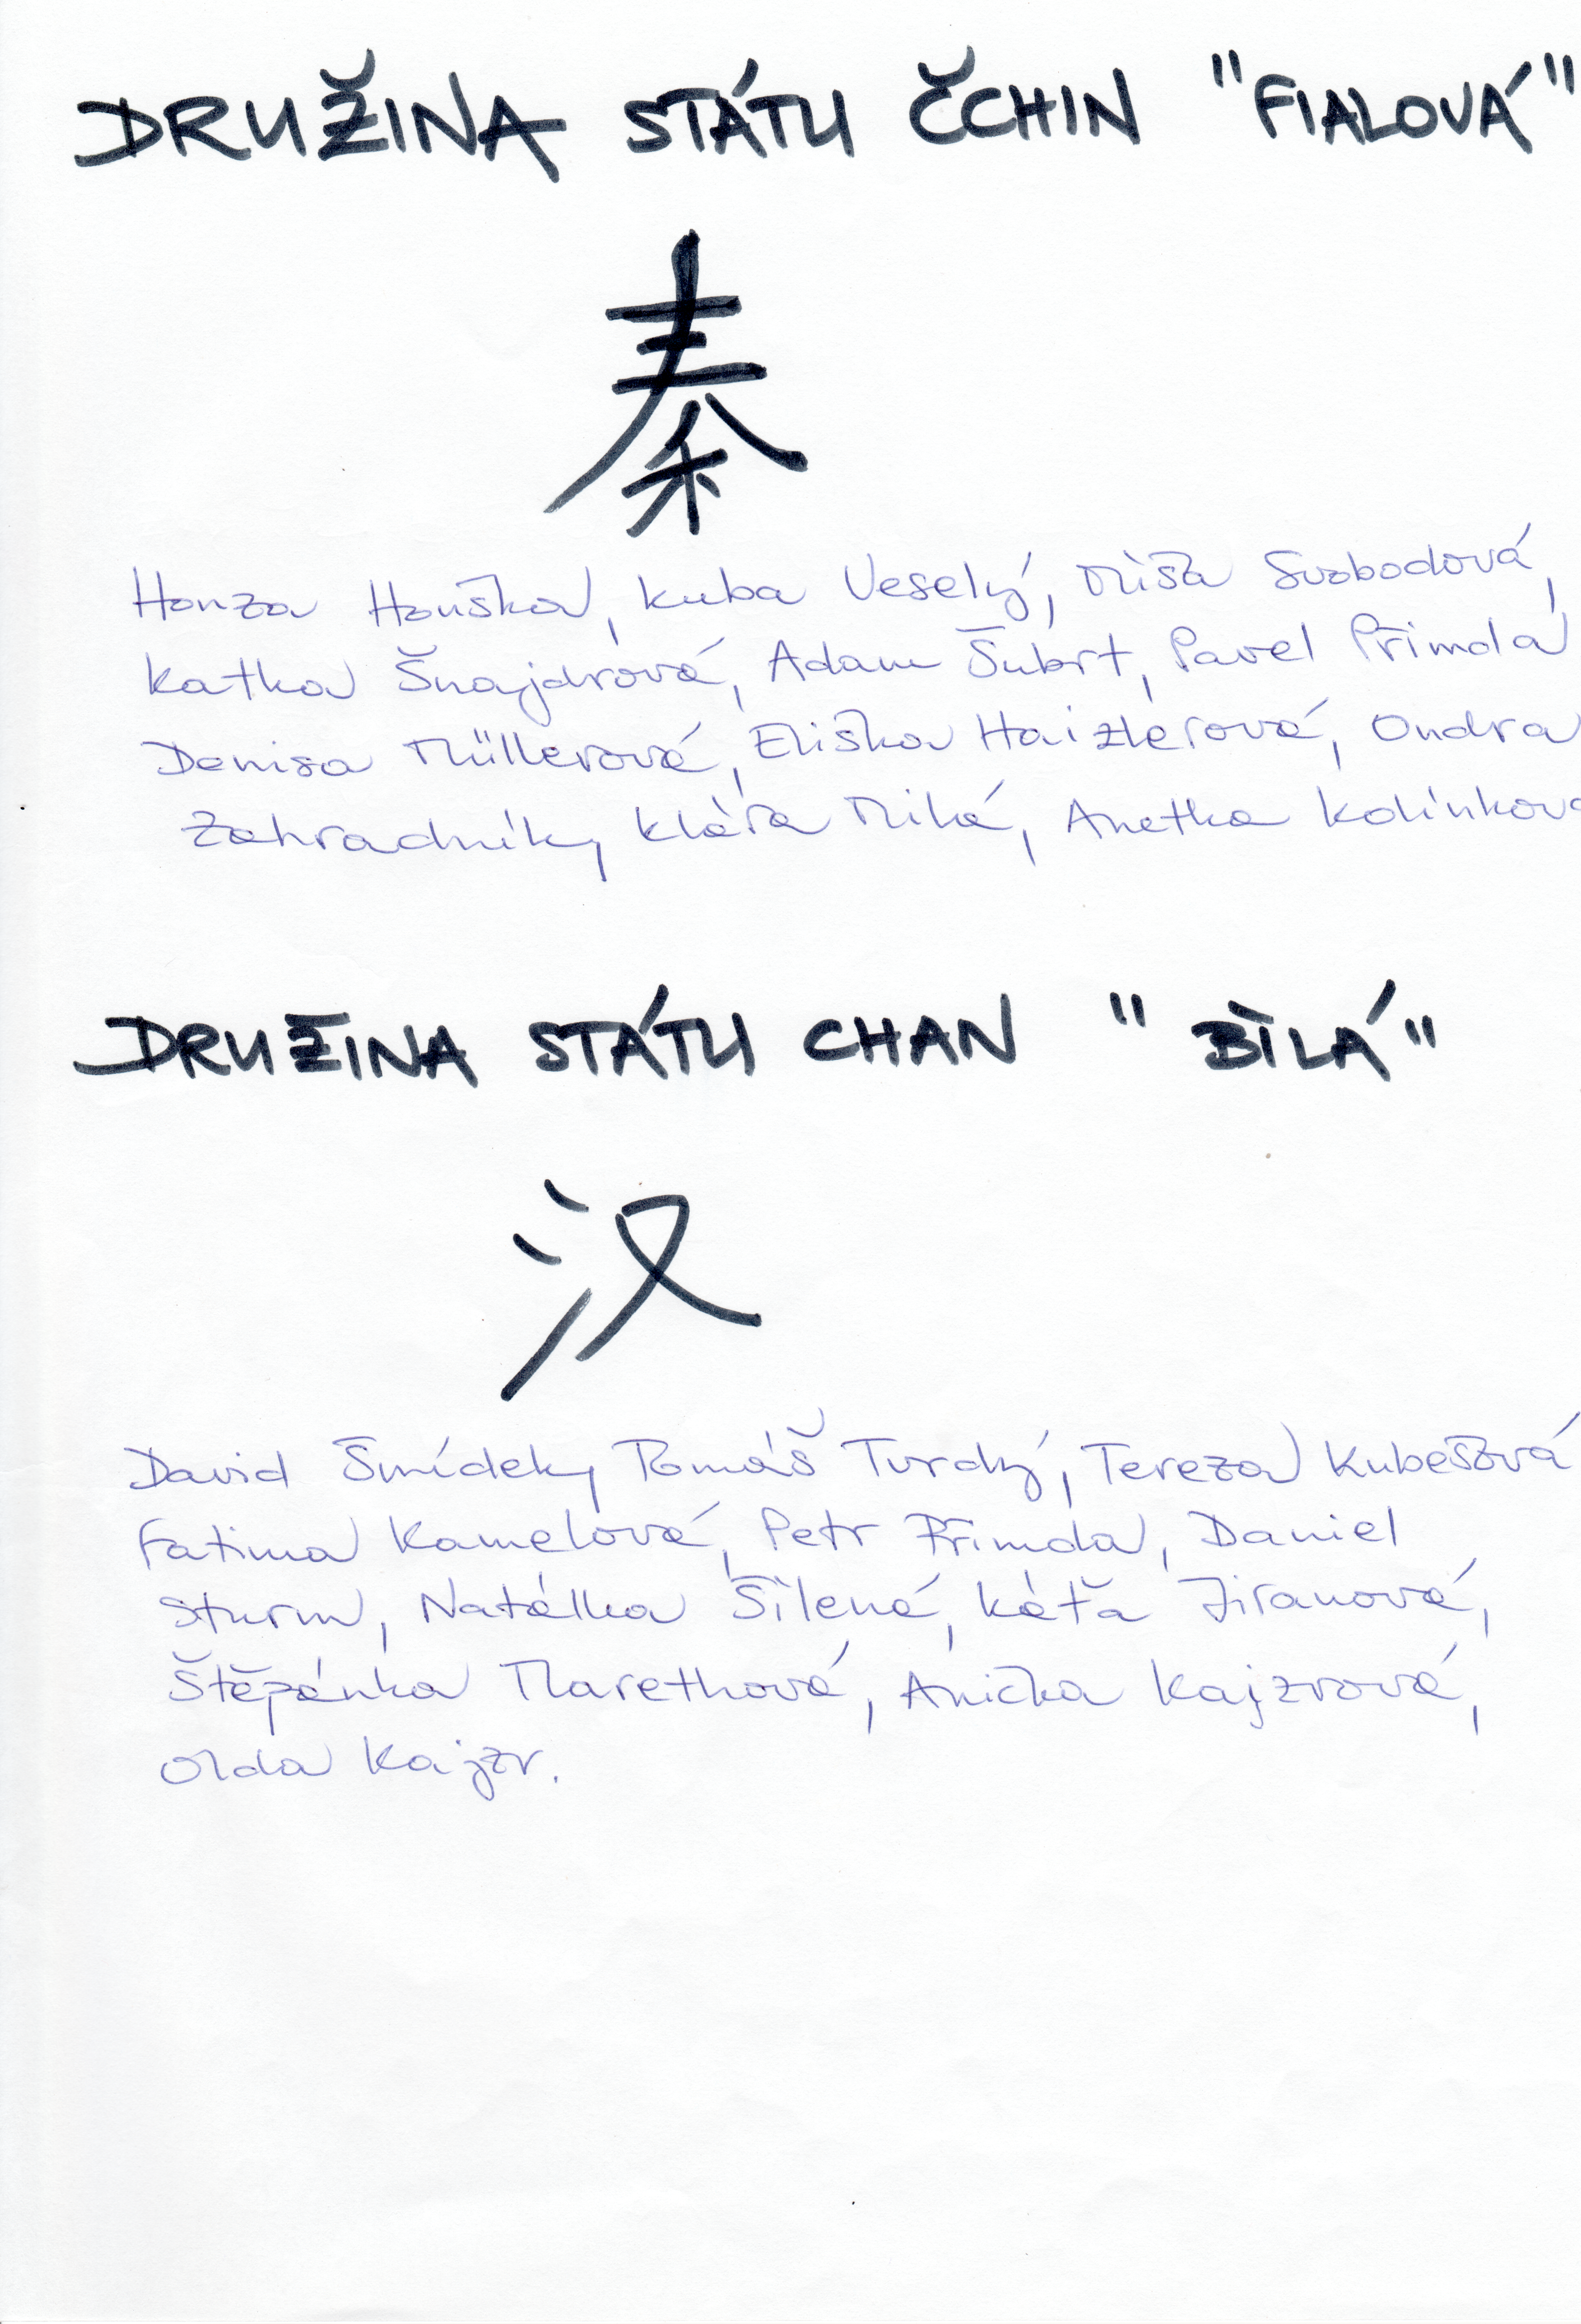 DRUŽINA STÁTU ČCHIN "FIALOVÁ"
秦
Honza Houška, Kuba Veselý, Míša Svobodová,
Katka Šnajdrová, Adam Šubrt, Pavel Přimda
Denisa Müllerová, Eliška Haizlerová, Ondra
Zahradník, Klára Milá, Anetka Kolínková
DRUŽINA STÁTU CHAN "BÍLÁ"
汉
David Šmídek, Tomáš Tvrdý, Tereza Kubešová
Fatima Kamelová, Petr Přimda, Daniel
Sturm, Natálka Šílená, Káťa Jiranová,
Štěpánka Marethová, Anička Kajzrová,
Olda Kajzr.